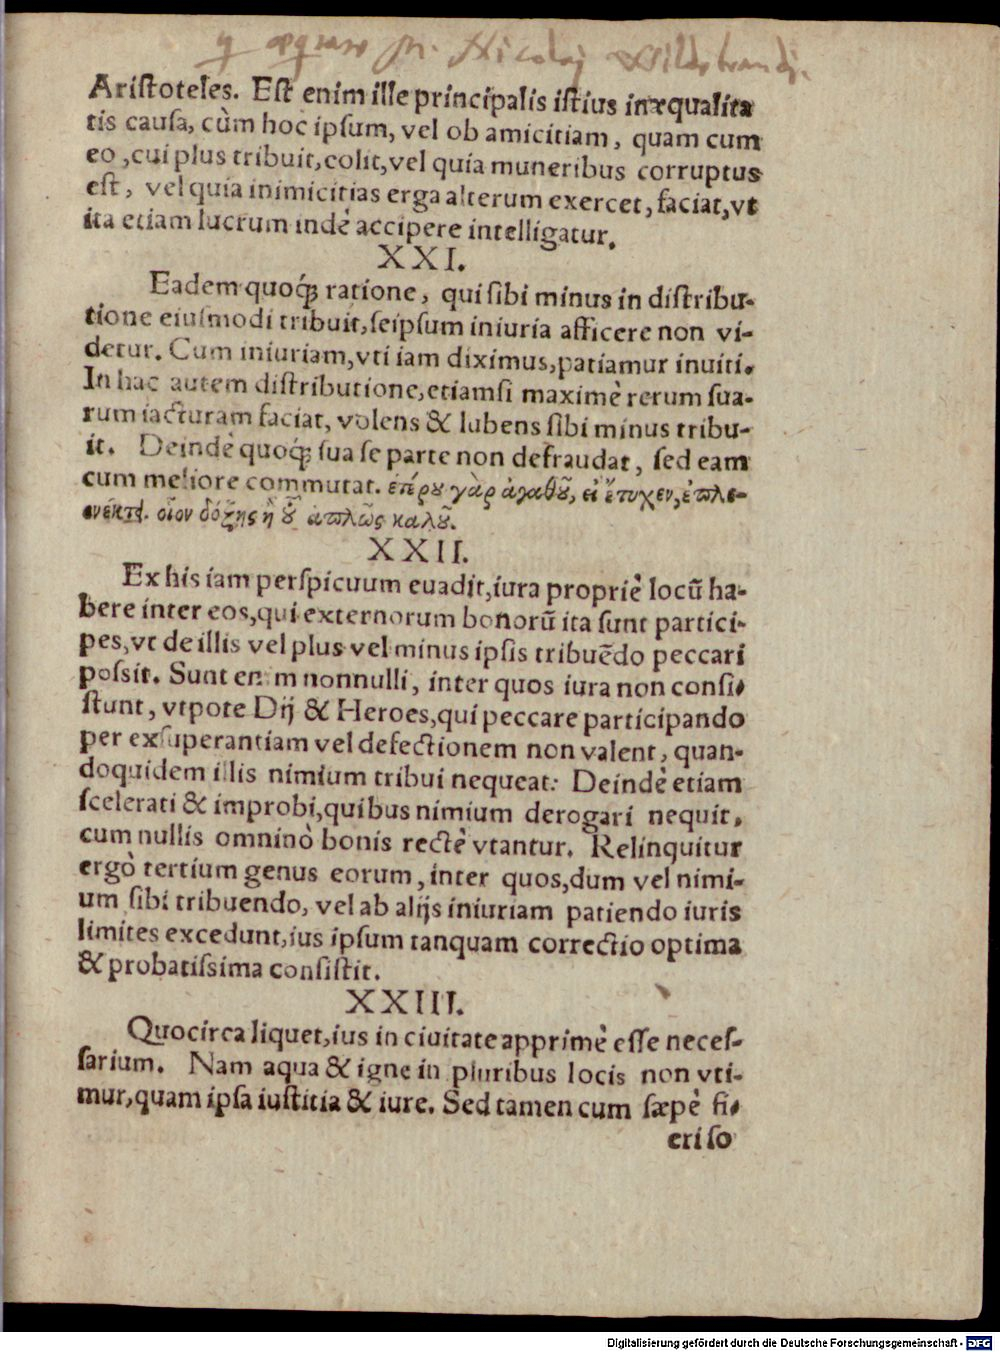 Nicolaj Hildebrandj.
Ariſtoteles. Eſt enim ille principalis iſtius inæqualita
tis cauſa, cùm hoc ipſum, vel ob amicitiam, quam cum
eo, cui plus tribuit, colit, vel quia muneribus corruptus
eſt, vel quia inimicitias erga alterum exercet, faciat, vt
ita etiam lucrum indè accipere intelligatur.
XXI.
Eadem quoq́; ratione, qui ſibi minus in diſtribu-
tione eiuſmodi tribuit, ſeipſum iniuria afficere non vi-
detur. Cum iniuriam, vti iam diximus, patiamur inuiti.
In hac autem diſtributione, etiamſi maximè rerum ſua-
rum iacturam faciat, volens & lubens ſibi minus tribu-
it. Deindè quoq́; ſua ſe parte non defraudat, ſed eam
cum meliore commutat. ἑτέρου γὰρ ἀγαθοῦ, εἰ ἔτυχεν, ἐπλε-
ονέκτει. οἷον δόξης ἢ τοῦ ἁπλῶς καλοῦ.
XXII.
Ex his iam perſpicuum euadit, iura propriè locũ ha-
bere inter eos, qui externorum bonorũ ita ſunt partici-
pes, vt de illis vel plus vel minus ipſis tribuẽdo peccari
poſsit. Sunt enim nonnulli, inter quos iura non conſi-
ſtunt, vtpote Dij & Heroes, qui peccare participando
per exſuperantiam vel defectionem non valent, quan-
doquidem illis nimium tribui nequeat: Deindè etiam
ſcelerati & improbi, quibus nimium derogari nequit,
cum nullis omninò bonis rectè vtantur. Relinquitur
ergò tertium genus eorum, inter quos, dum vel nimi-
um ſibi tribuendo, vel ab alijs iniuriam patiendo iuris
limites excedunt, ius ipſum tanquam correctio optima
& probatiſsima conſiſtit.
XXIII.
Quocirca liquet, ius in ciuitate apprimè eſſe neceſ-
ſarium. Nam aqua & igne in pluribus locis non vti-
mur, quam ipſa iuſtitia & iure. Sed tamen cum ſæpè fi-
eri ſo
Digitalisierung gefördert durch die Deutsche Forschungsgemeinschaft - DFG